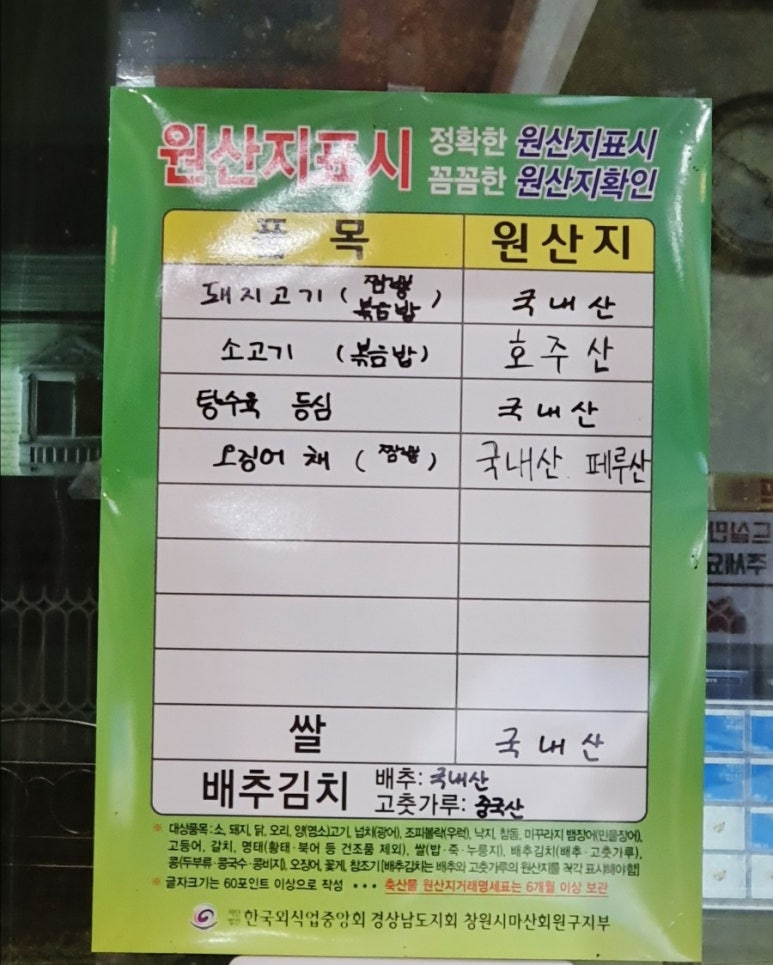 원산지표시
정확한 원산지표시
꼼꼼한 원산지확인
품목 원산지
돼지고기 (짬뽕 볶음밥) 국내산
소고기 (볶음밥) 호주산
탕수육 등심 국내산
오징어 채 (짬뽕) 국내산. 페루산
쌀 국내산
배추김치 배추: 국내산
고춧가루: 중국산
※ 대상품목 : 소, 돼지, 닭, 오리, 양(염소)고기, 넙치(광어), 조피볼락(우럭), 낙지, 참돔, 미꾸라지 뱀장어(민물장어),
고등어, 갈치, 명태(황태·북어 등 건조품 제외), 쌀(밥·죽·누룽지), 배추김치(배추·고춧가루),
콩(두부류·콩국수·콩비지), 오징어, 꽃게, 참조기 [배추김치는 배추와 고춧가루의 원산지를 각각 표시해야함]
※ 글자크기는 60포인트 이상으로 작성 ••• 축산물 원산지거래명세표는 6개월 이상 보관
한국외식업중앙회 경상남도지회 창원시마산회원구지부